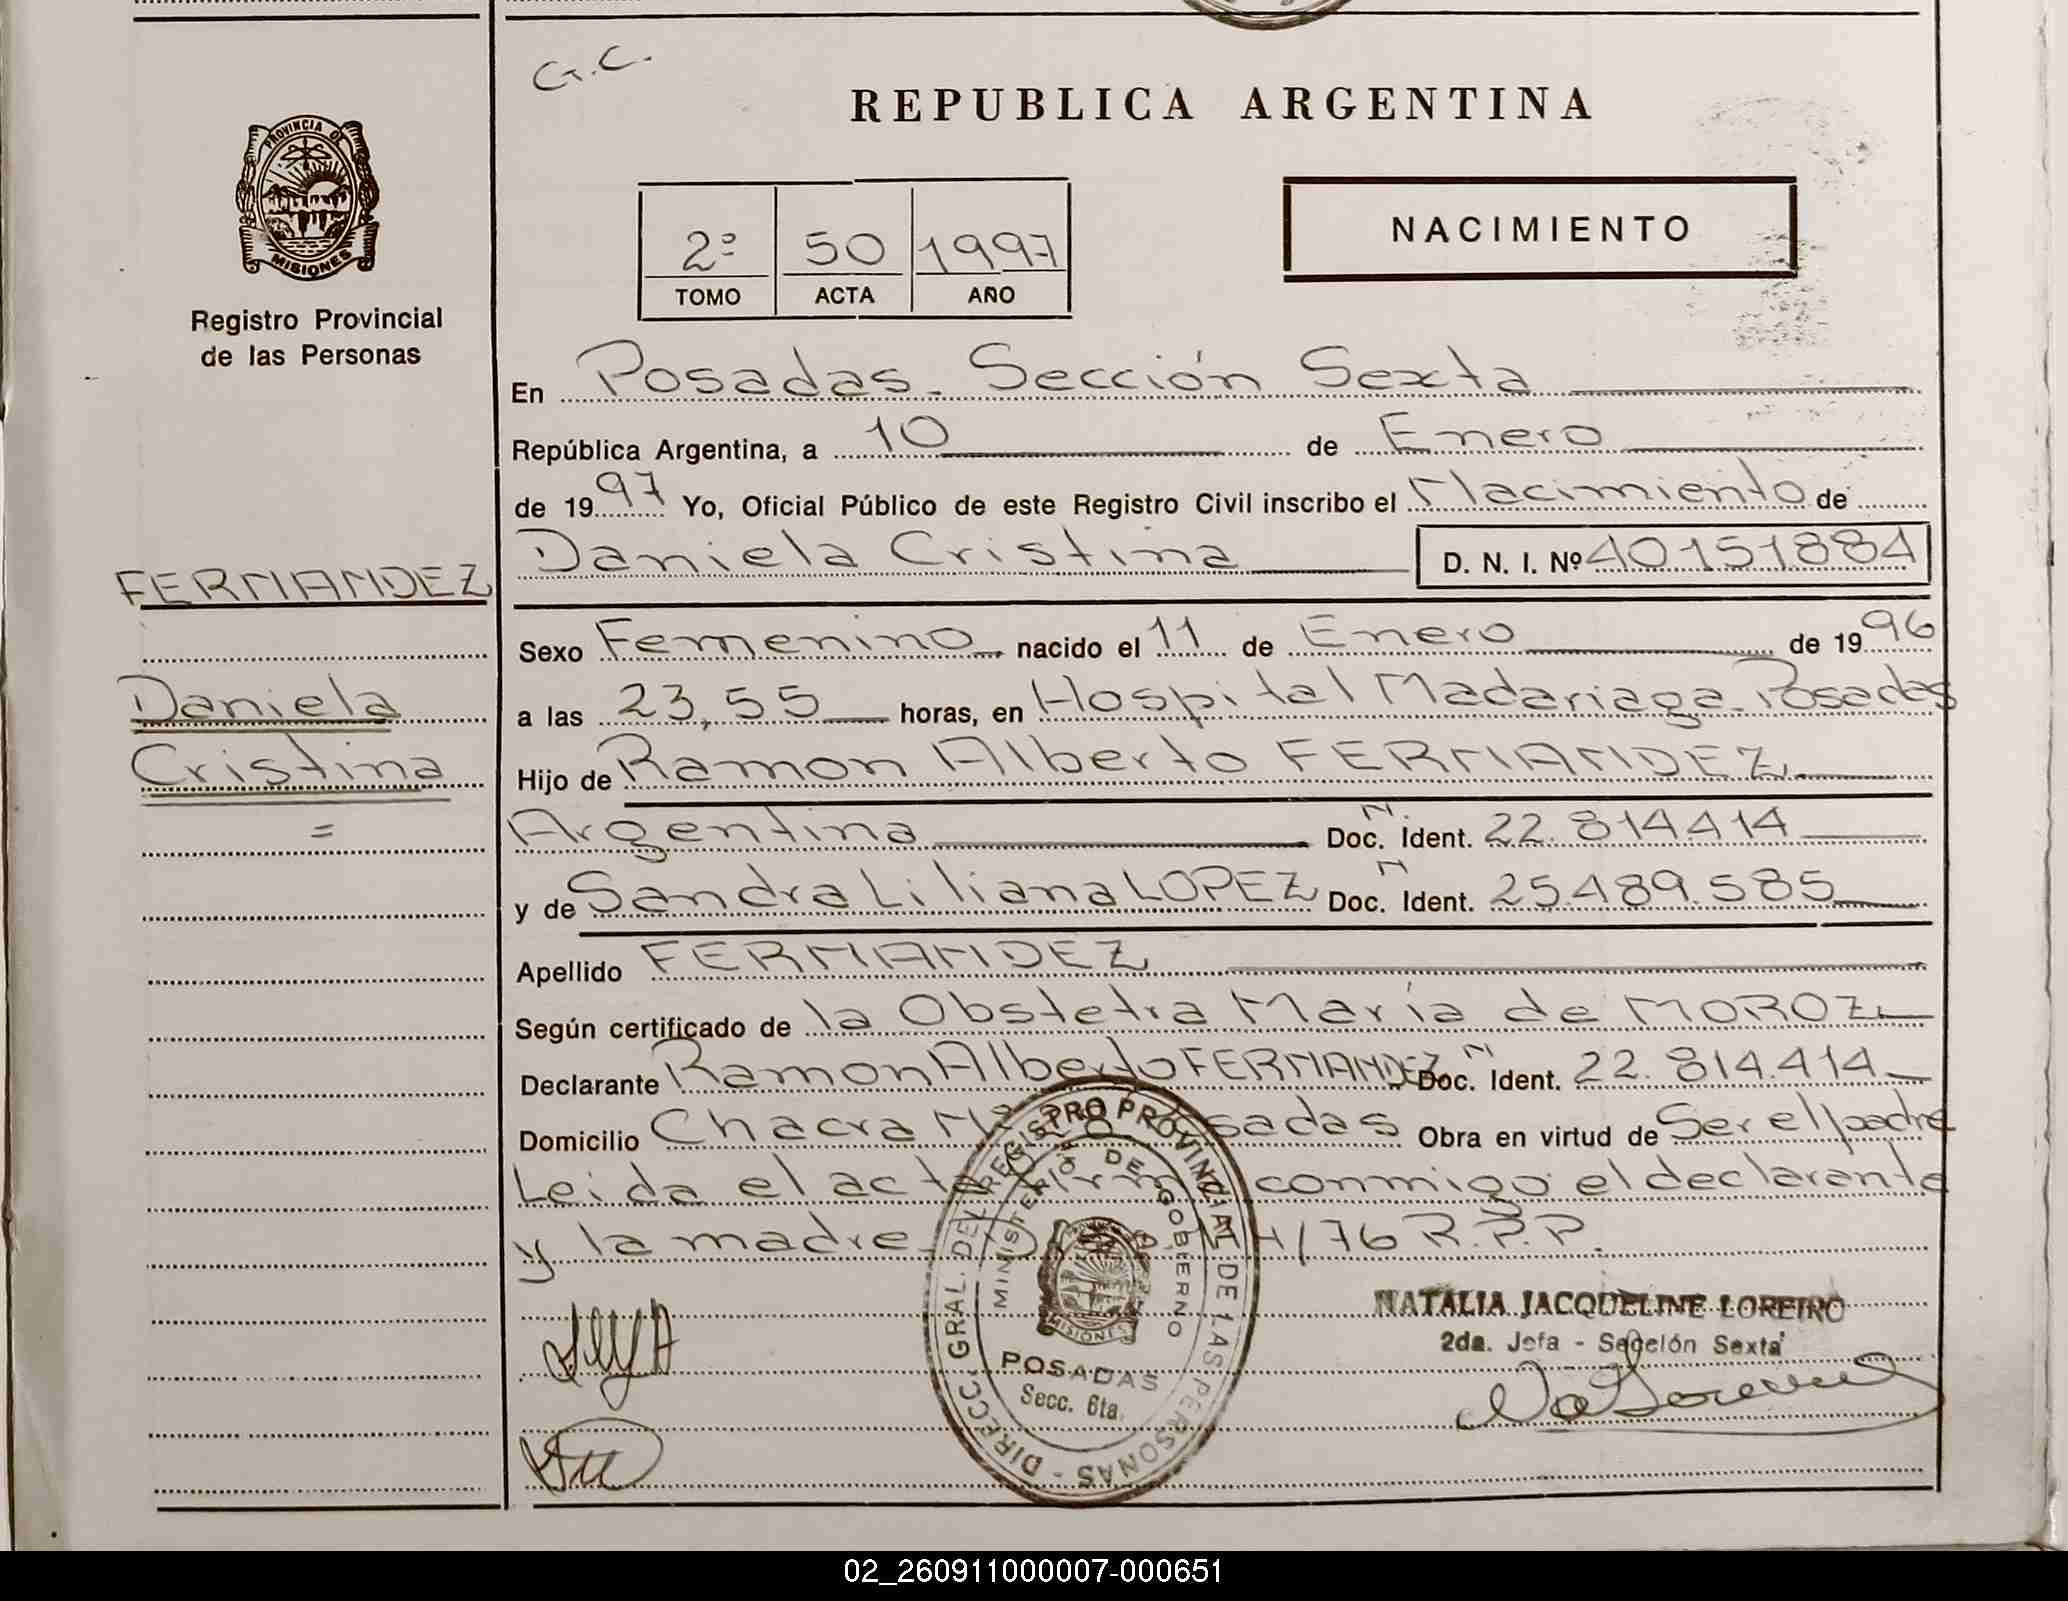 G.C.
REPUBLICA ARGENTINA
PROVINCIA DE
MISIONES
Registro Provincial
de las Personas
2º 50 1997
TOMO ACTA AÑO
NACIMIENTO
En Posadas. Sección Sexta
República Argentina, a 10 de Enero
de 1997 Yo, Oficial Público de este Registro Civil inscribo el Nacimiento de
Daniela Cristina D. N. I. Nº 40151884
FERNANDEZ
Daniela
Cristina
=
Sexo Femenino nacido el 11 de Enero de 1996
a las 23,55 horas, en Hospital Madariaga. Posadas
Hijo de Ramon Alberto FERNANDEZ
Argentina Doc. N. Ident. 22.814.414
y de Sandra Liliana LOPEZ Doc. N Ident. 25.489.585
Apellido FERNANDEZ
Según certificado de la Obstetra María de MOROZ
Declarante Ramon Alberto FERNANDEZ Doc. N Ident. 22.814.414
Domicilio Chacra Posadas Obra en virtud de Ser el padre
Leida el acta firma conmigo el declarante
y la madre. /76 R.P.P.
DIRECC. GRAL. DEL REGISTRO PROVINCIAL DE LAS PERSONAS
MINISTERIO DE GOBIERNO
MISIONES
POSADAS
Secc. 6ta.
NATALIA JACQUELINE LOREIRO
2da. Jefa - Sección Sexta
02_260911000007-000651